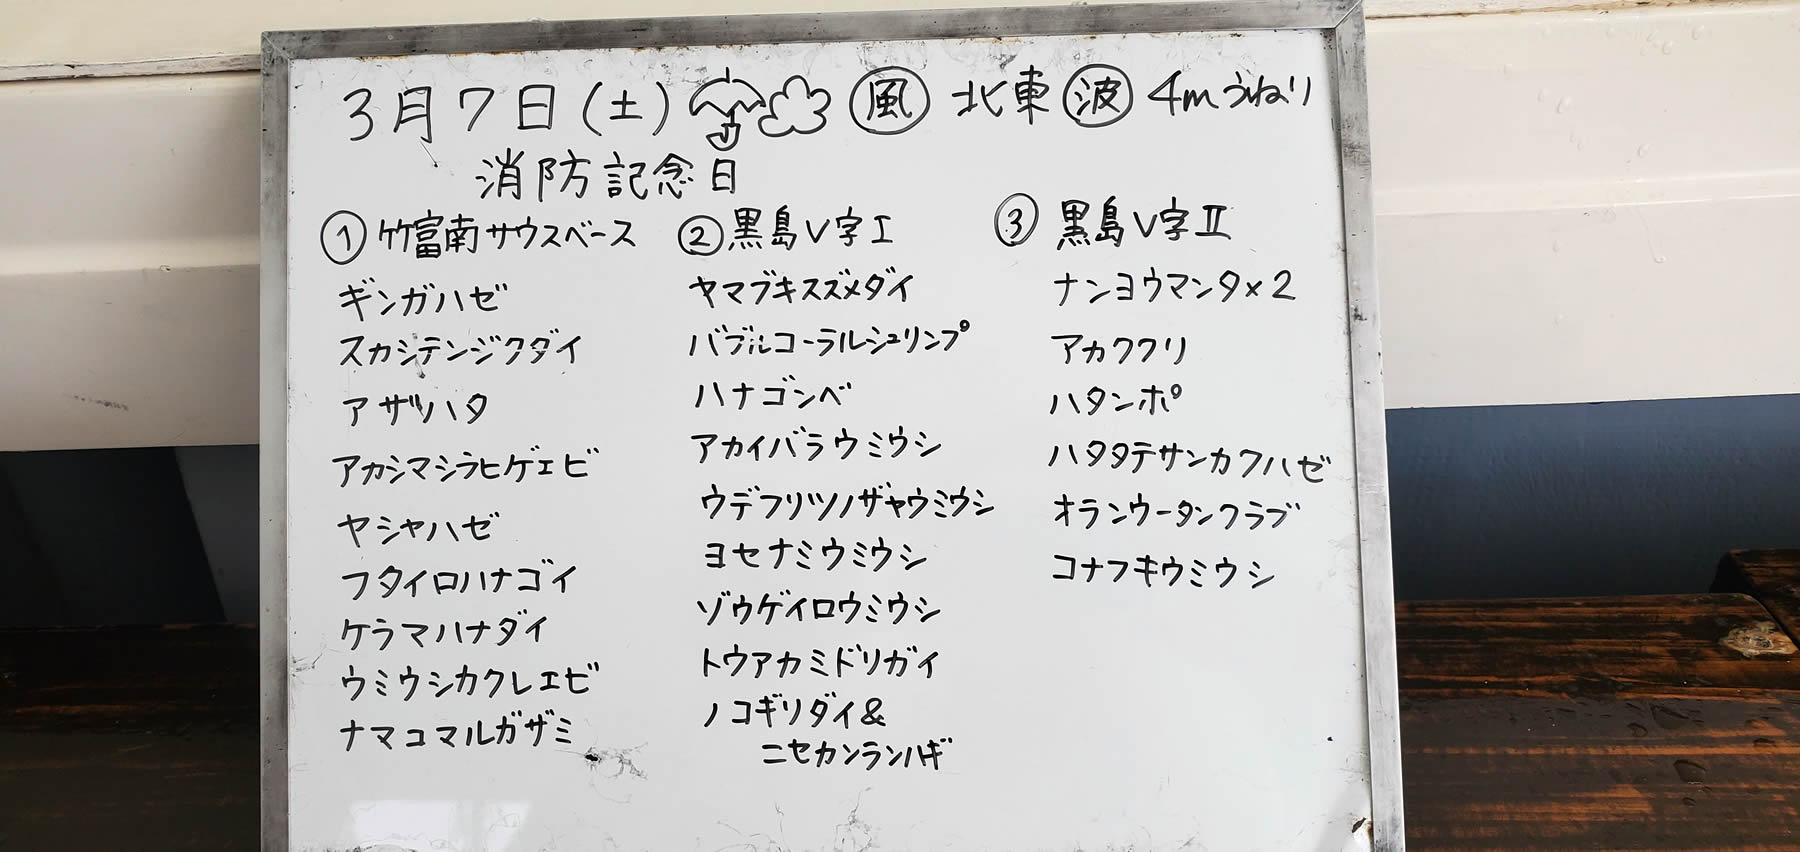 3月7日(土) 風 北東 波 4mうねり
消防記念日
① 竹富南サウスベース
ギンガハゼ
スカシテンジクダイ
アザハタ
アカシマシラヒゲエビ
ヤシャハゼ
フタイロハナゴイ
ケラマハナダイ
ウミウシカクレエビ
ナマコマルガザミ
② 黒島V字Ⅰ
ヤマブキスズメダイ
バブルコーラルシュリンプ
ハナゴンベ
アカイバラウミウシ
ウデフリツノザヤウミウシ
ヨセナミウミウシ
ゾウゲイロウミウシ
トウアカミドリガイ
ノコギリダイ&
ニセカンランハギ
③ 黒島V字Ⅱ
ナンヨウマンタ×2
アカククリ
ハタンポ
ハタタテサンカクハゼ
オランウータンクラブ
コナフキウミウシ